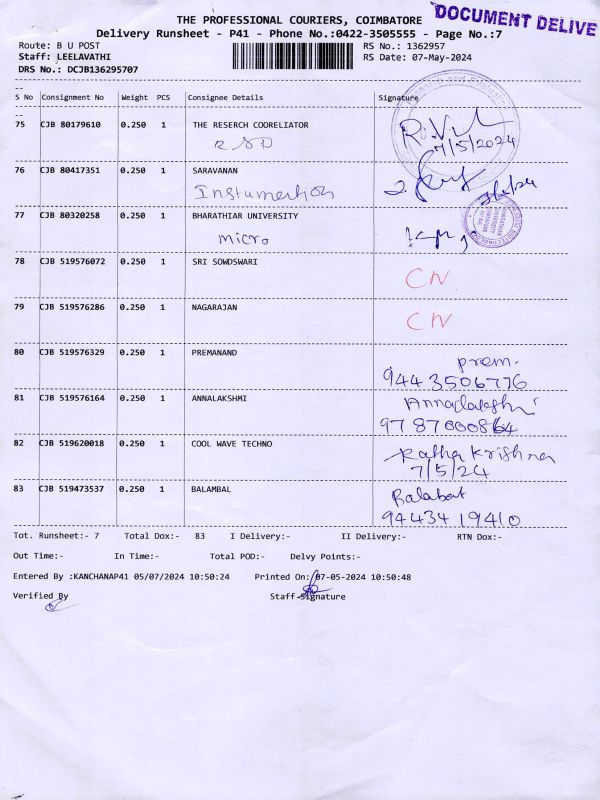 THE PROFESSIONAL COURIERS, COIMBATORE
DOCUMENT DELIVE
Delivery Runsheet - P41 - Phone No.:0422-3505555 - Page No.:7
Route: B U POST
RS No.: 1362957
Staff: LEELAVATHI
RS Date: 07-May-2024
DRS No.: DCJB136295707
S No Consignment No Weight PCS Consignee Details Signature
75 CJB 80179610 0.250 1 THE RESERCH COORELIATOR
R&D
7/5/2024
76 CJB 80417351 0.250 1 SARAVANAN
77 CJB 80320258 0.250 1 BHARATHIAR UNIVERSITY
micro
78 CJB 519576072 0.250 1 SRI SOWDSWARI
CN
79 CJB 519576286 0.250 1 NAGARAJAN
CN
80 CJB 519576329 0.250 1 PREMANAND
prem.
9443506776
81 CJB 519576164 0.250 1 ANNALAKSHMI
82 CJB 519620018 0.250 1 COOL WAVE TECHNO
Ratha Krishna
7/5/24
83 CJB 519473537 0.250 1 BALAMBAL
9443419410
Tot. Runsheet:- 7 Total Dox:- 83 I Delivery:- II Delivery:- RTN Dox:-
Out Time:- In Time:- Total POD:- Delvy Points:-
Entered By :KANCHANAP41 05/07/2024 10:50:24 Printed On: 07-05-2024 10:50:48
Verified By Staff-Signature